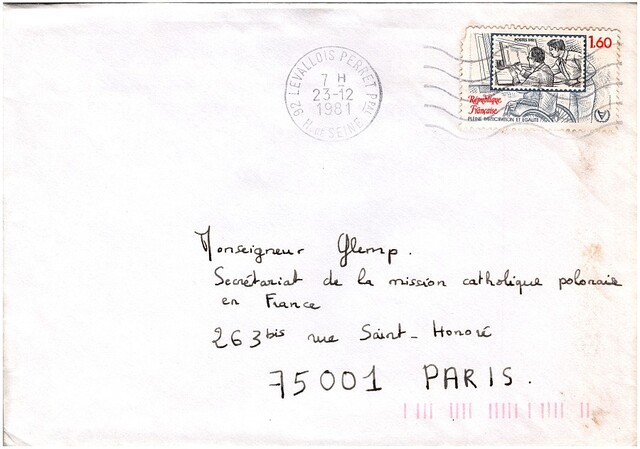 92 LEVALLOIS PERRET Ppal
7 H
23-12
1981
Hts DE SEINE
POSTES 1981
1.60
République
Française
PLEINE PARTICIPATION ET EGALITE
Monseigneur Glemp.
Secrétariat de la mission catholique polonaise
en France
263 bis rue Saint-Honoré
75001 PARIS.